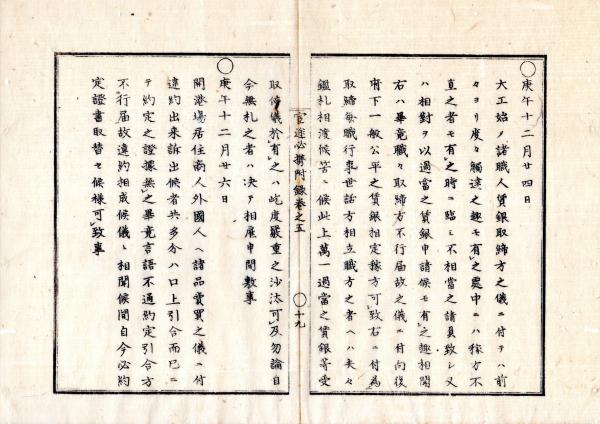 庚午十二月廿四日
大工始メ諸職人賃銀取締方之儀ニ付テハ前
々ヨリ度々觸達之趣モ有之處中ニハ稼方不
直之者モ有之時ニ臨ミ不相當之請負致シ又
ハ相對ヲ以過當之賃銀申請候モ有之趣相聞
右ハ畢竟職々取締方不行届故之儀ニ付向後
府下一般公平之賃銀相定稼方可致右ニ付為
取締毎職行事世話方相立職方之者ヘハ夫々
鑑札相渡候筈ニ候此上萬一過當之賃銀等受
官途必攜附錄卷之五
十九
取候儀於有之ハ屹度嚴重之沙汰可及勿論自
今無札之者ハ決テ相雇申間敷事
庚午十二月廿六日
開港場居住商人外國人ヘ諸品賣買之儀ニ付
違約出來訴出候者共多分ハ口上引合而已ニ
テ約定之證據無之畢竟言語不通約定引合方
不行届故違約相成候儀ト相聞候間自今必約
定證書取替セ候樣可致事